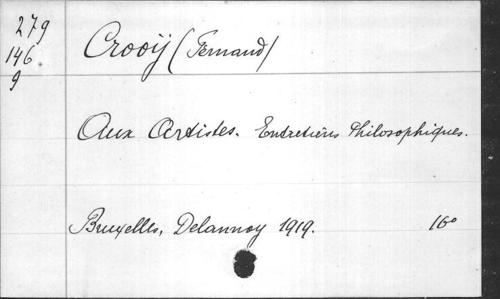 279
146
9
Crooÿ (Fernand)
Aux Artistes. Entretiens Philosophiques.
Bruxelles, Delannoy 1919. 16°